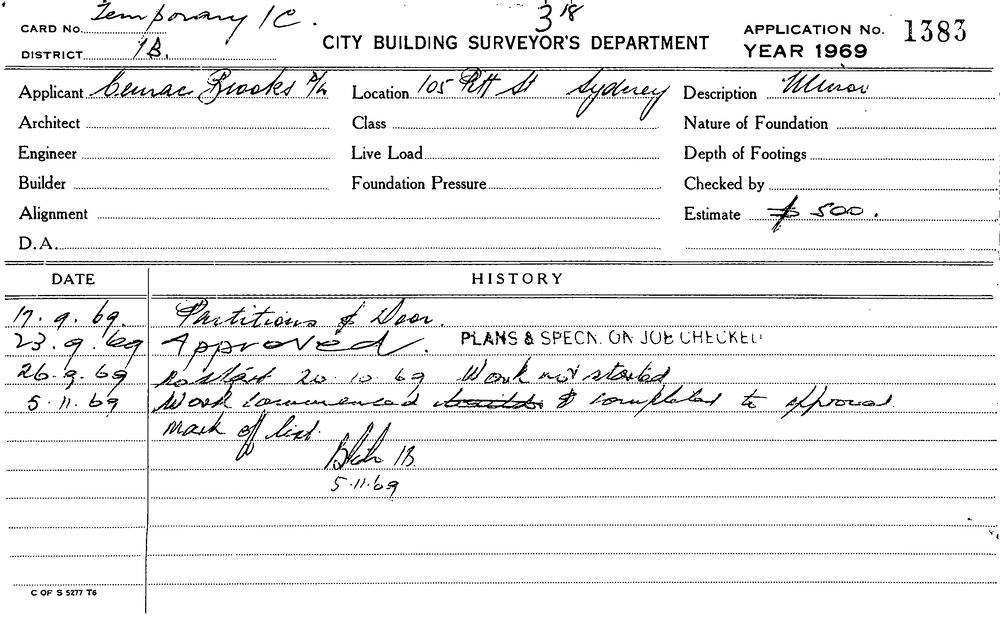 CARD No. Temporary 1C. 3 18
APPLICATION No. 1383
DISTRICT 1B. CITY BUILDING SURVEYOR'S DEPARTMENT YEAR 1969
Applicant Brooks P/L Location 105 Pitt St Sydney Description Minor
Architect Class Nature of Foundation
Engineer Live Load Depth of Footings
Builder Foundation Pressure Checked by
Alignment Estimate $ 500.
D.A.
DATE HISTORY
17.9.69. Partitions & Door.
23.9.69 Approved. PLANS & SPECN. ON JOB CHECKED
26.9.69 No start 20.10.69 Work not started
5.11.69 Work commenced & completed to approval.
Mark off list.
1B.
5.11.69
C OF S 5277 T6